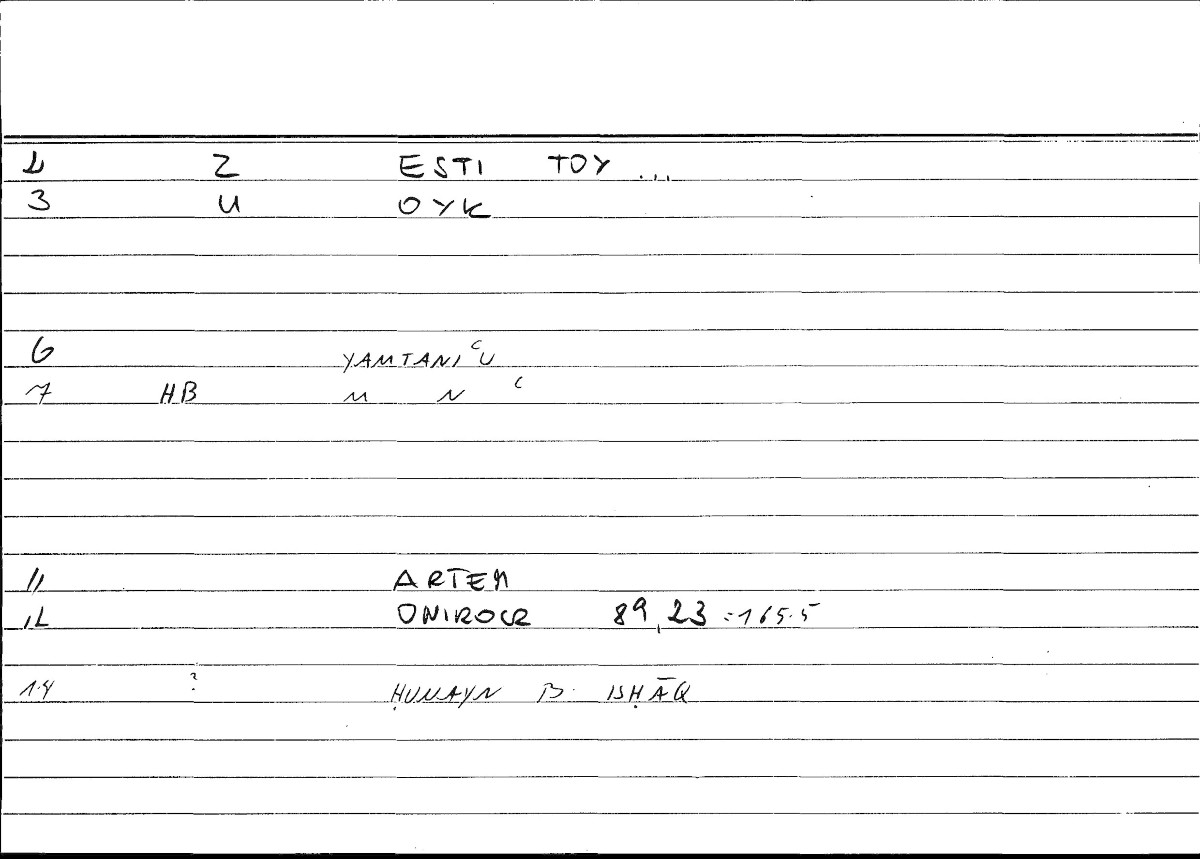 2 Z ESTI TOY ...
3 U OYK
6 YAMTANIʿU
7 HB M N ʿ
11 ARTEM
12 ONIROCR 89,23 = 165.5
14 ? ḤUNAYN B. ISḤĀQ